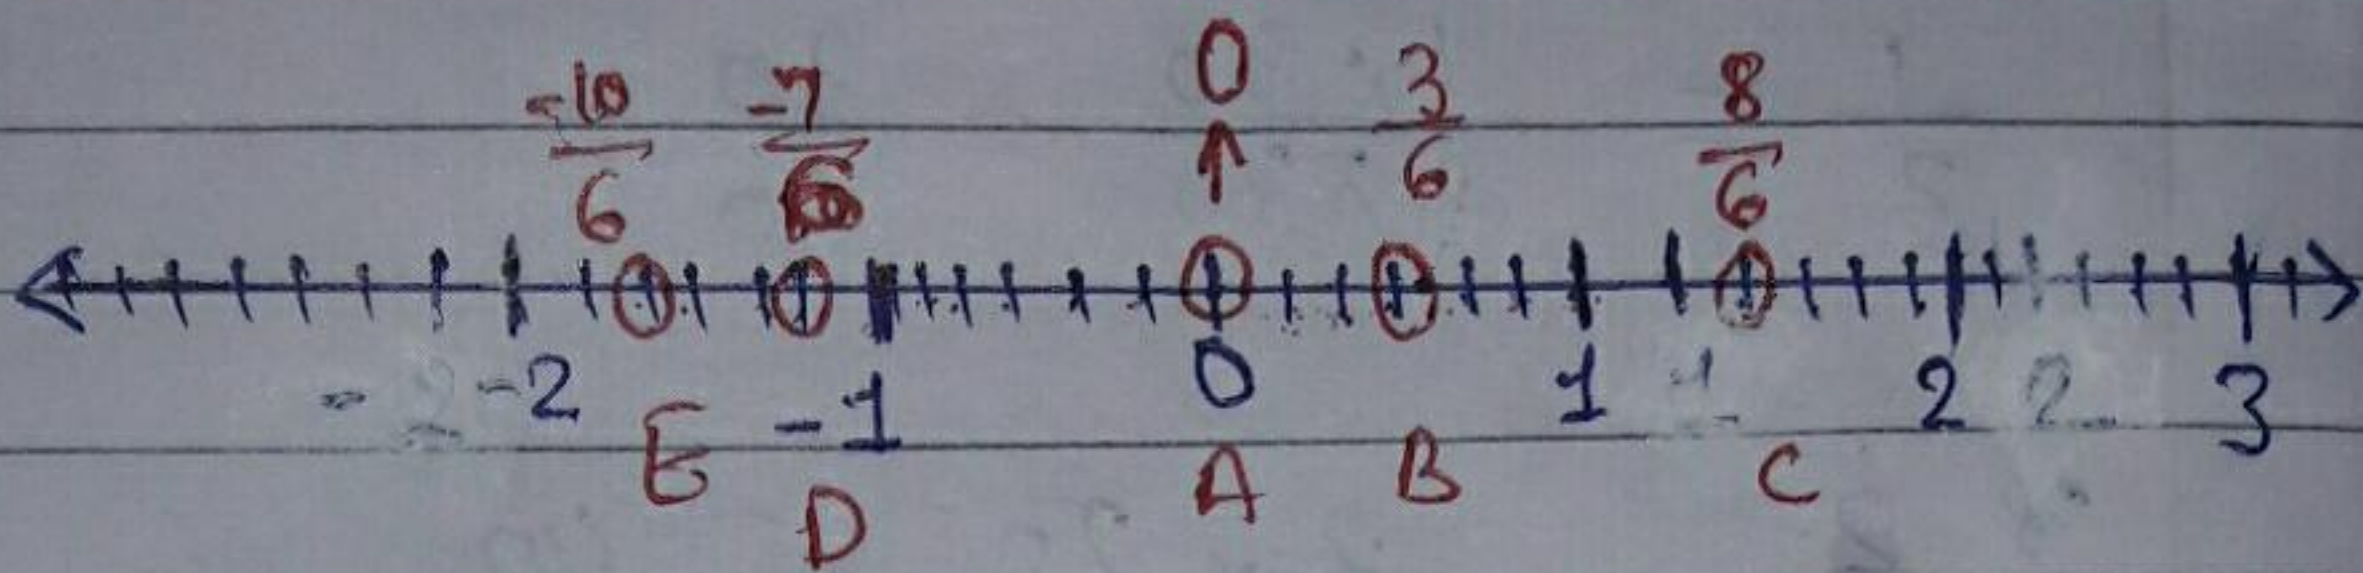 -10/6 -7/6 0 3/6 8/6
-2 -1 0 1 2 3
E D A B C